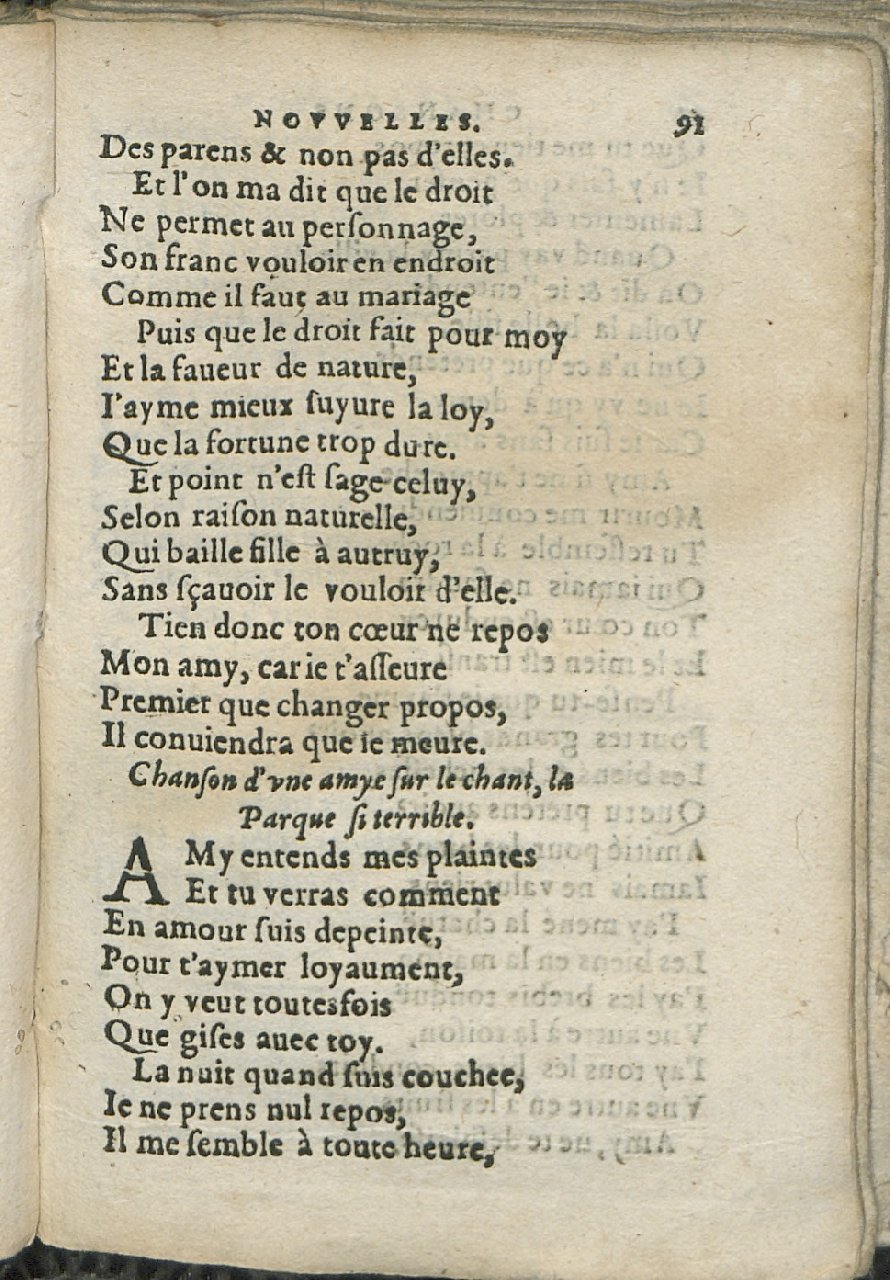 NOVVELLES. 91
Des parens & non pas d'elles.
Et l'on ma dit que le droit
Ne permet au perſonnage,
Son franc vouloir en endroit
Comme il faut au mariage
Puis que le droit fait pour moy
Et la faueur de nature,
I'ayme mieux ſuyure la loy,
Que la fortune trop dure.
Et point n'eſt ſage celuy,
Selon raiſon naturelle,
Qui baille fille à autruy,
Sans ſçauoir le vouloir d'elle.
Tien donc ton cœur ne repos
Mon amy, car ie t'aſſeure
Premier que changer propos,
Il conuiendra que ie meure.
Chanſon d'vne amye ſur le chant, la
Parque ſi terrible.
AMy entends mes plaintes
Et tu verras comment
En amour ſuis depeinte,
Pour t'aymer loyaument,
On y veut toutesfois
Que giſes auec toy.
La nuit quand ſuis couchee,
Ie ne prens nul repos,
Il me ſemble à toute heure,